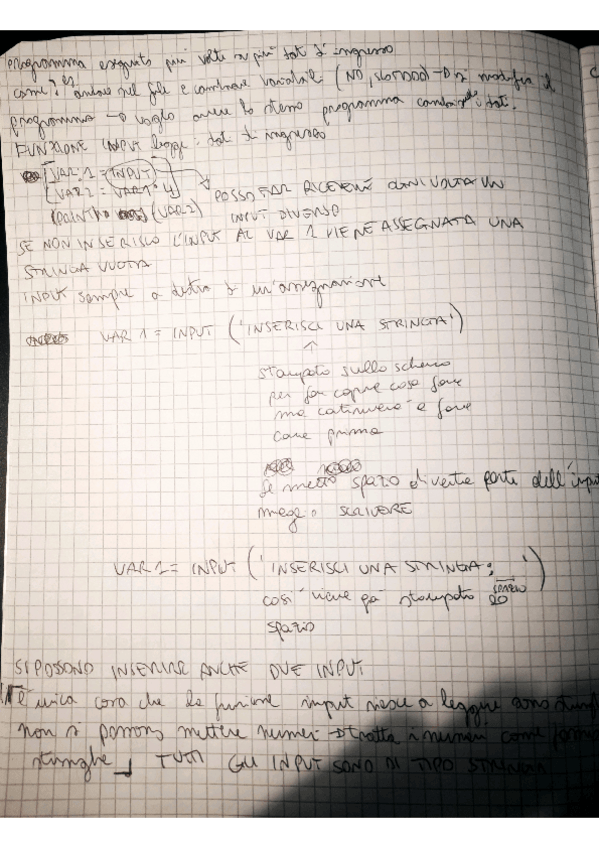 programma eseguito più volte su più dati d'ingresso
come? es andare nel file e cambiare variabili (NO, SCOMODO) → modifica il
programma → voglio avere lo stesso programma cambiando i dati.
FUNZIONE INPUT legge i dati di ingresso
VAR 1 = INPUT
VAR 2 = VAR 1 * 4
(VAR2)
POSSO FAR RICEVERE OGNI VOLTA UN
INPUT DIVERSO
SE NON INSERISCO L'INPUT AL VAR 1 VIENE ASSEGNATA UNA
STRINGA VUOTA
INPUT sempre a destra di un'assegnazione
VAR 1 = INPUT ('INSERISCI UNA STRINGA')
↑
stampato sullo schermo
per far capire cosa fare
ma continuerà a fare
come prima
Se metto spazio diventa parte dell'input
meglio SCRIVERE
VAR 1 = INPUT ('INSERISCI UNA STRINGA: ')
spazio
così viene già stampato lo
spazio
SI POSSONO INSERIRE ANCHE DUE INPUT
È unica cosa che la funzione input riesce a leggere sono
non si possono mettere numeri → tratta i numeri come
stringhe TUTTI GLI INPUT SONO DI TIPO STRINGA